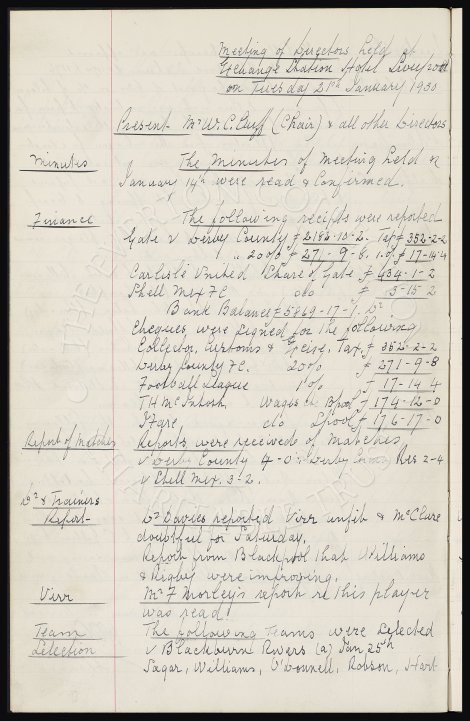 Meeting of Directors held at
Exchange Station Hotel Liverpool
on Tuesday 21st January 1930
Present Mr W.C. Cuff (Chair) & all other Directors
Minutes The Minutes of Meeting held on
January 14th were read & Confirmed.
Finance The following receipts were reported
Gate v Derby County £2182-15-2. Tax £352-2-2
" 20% £271-9-8. 1% £17-14-4
Carlisle United Share of Gate £434-1-2
Shell Mex FC do £ 3-15-2
Bank Balance £5869-17-1. Dr
Cheques were signed for the following
Collector, Customs & Excise. Tax. £352-2-2
Derby County FC. 20% £271-9-8
Football League 1% £17-14-4
T H McIntosh Wages &c Bpool £174-12-0
do Lpool £176-17-0
Report of Matches Reports were received of matches,
v Derby County 4-0. Derby County Res 2-4
v Shell Mex. 3-2.
Dr & Trainers
Report Dr Davies reported Virr unfit & McClure
doubtful for Saturday.
Report from Blackpool that Williams
& Rigby were improving.
Virr Mr F Morley's report re this player
was read.
Team
Selection The following Teams were selected
v Blackburn Rovers (a) Jan 25th
Sagar, Williams, O'Donnell, Robson, Hart